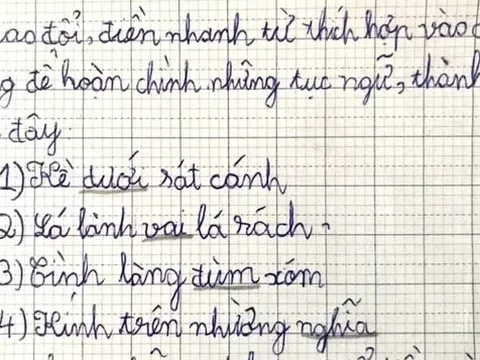 ao đổi, điền nhanh từ thích hợp vào c
g để hoàn chỉnh những tục ngữ, thành
đây:
1) Kề dưới sát cánh
2) Lá lành vai lá rách.
3) Tình làng đùm xóm
4) Kính trên nhường nghĩa